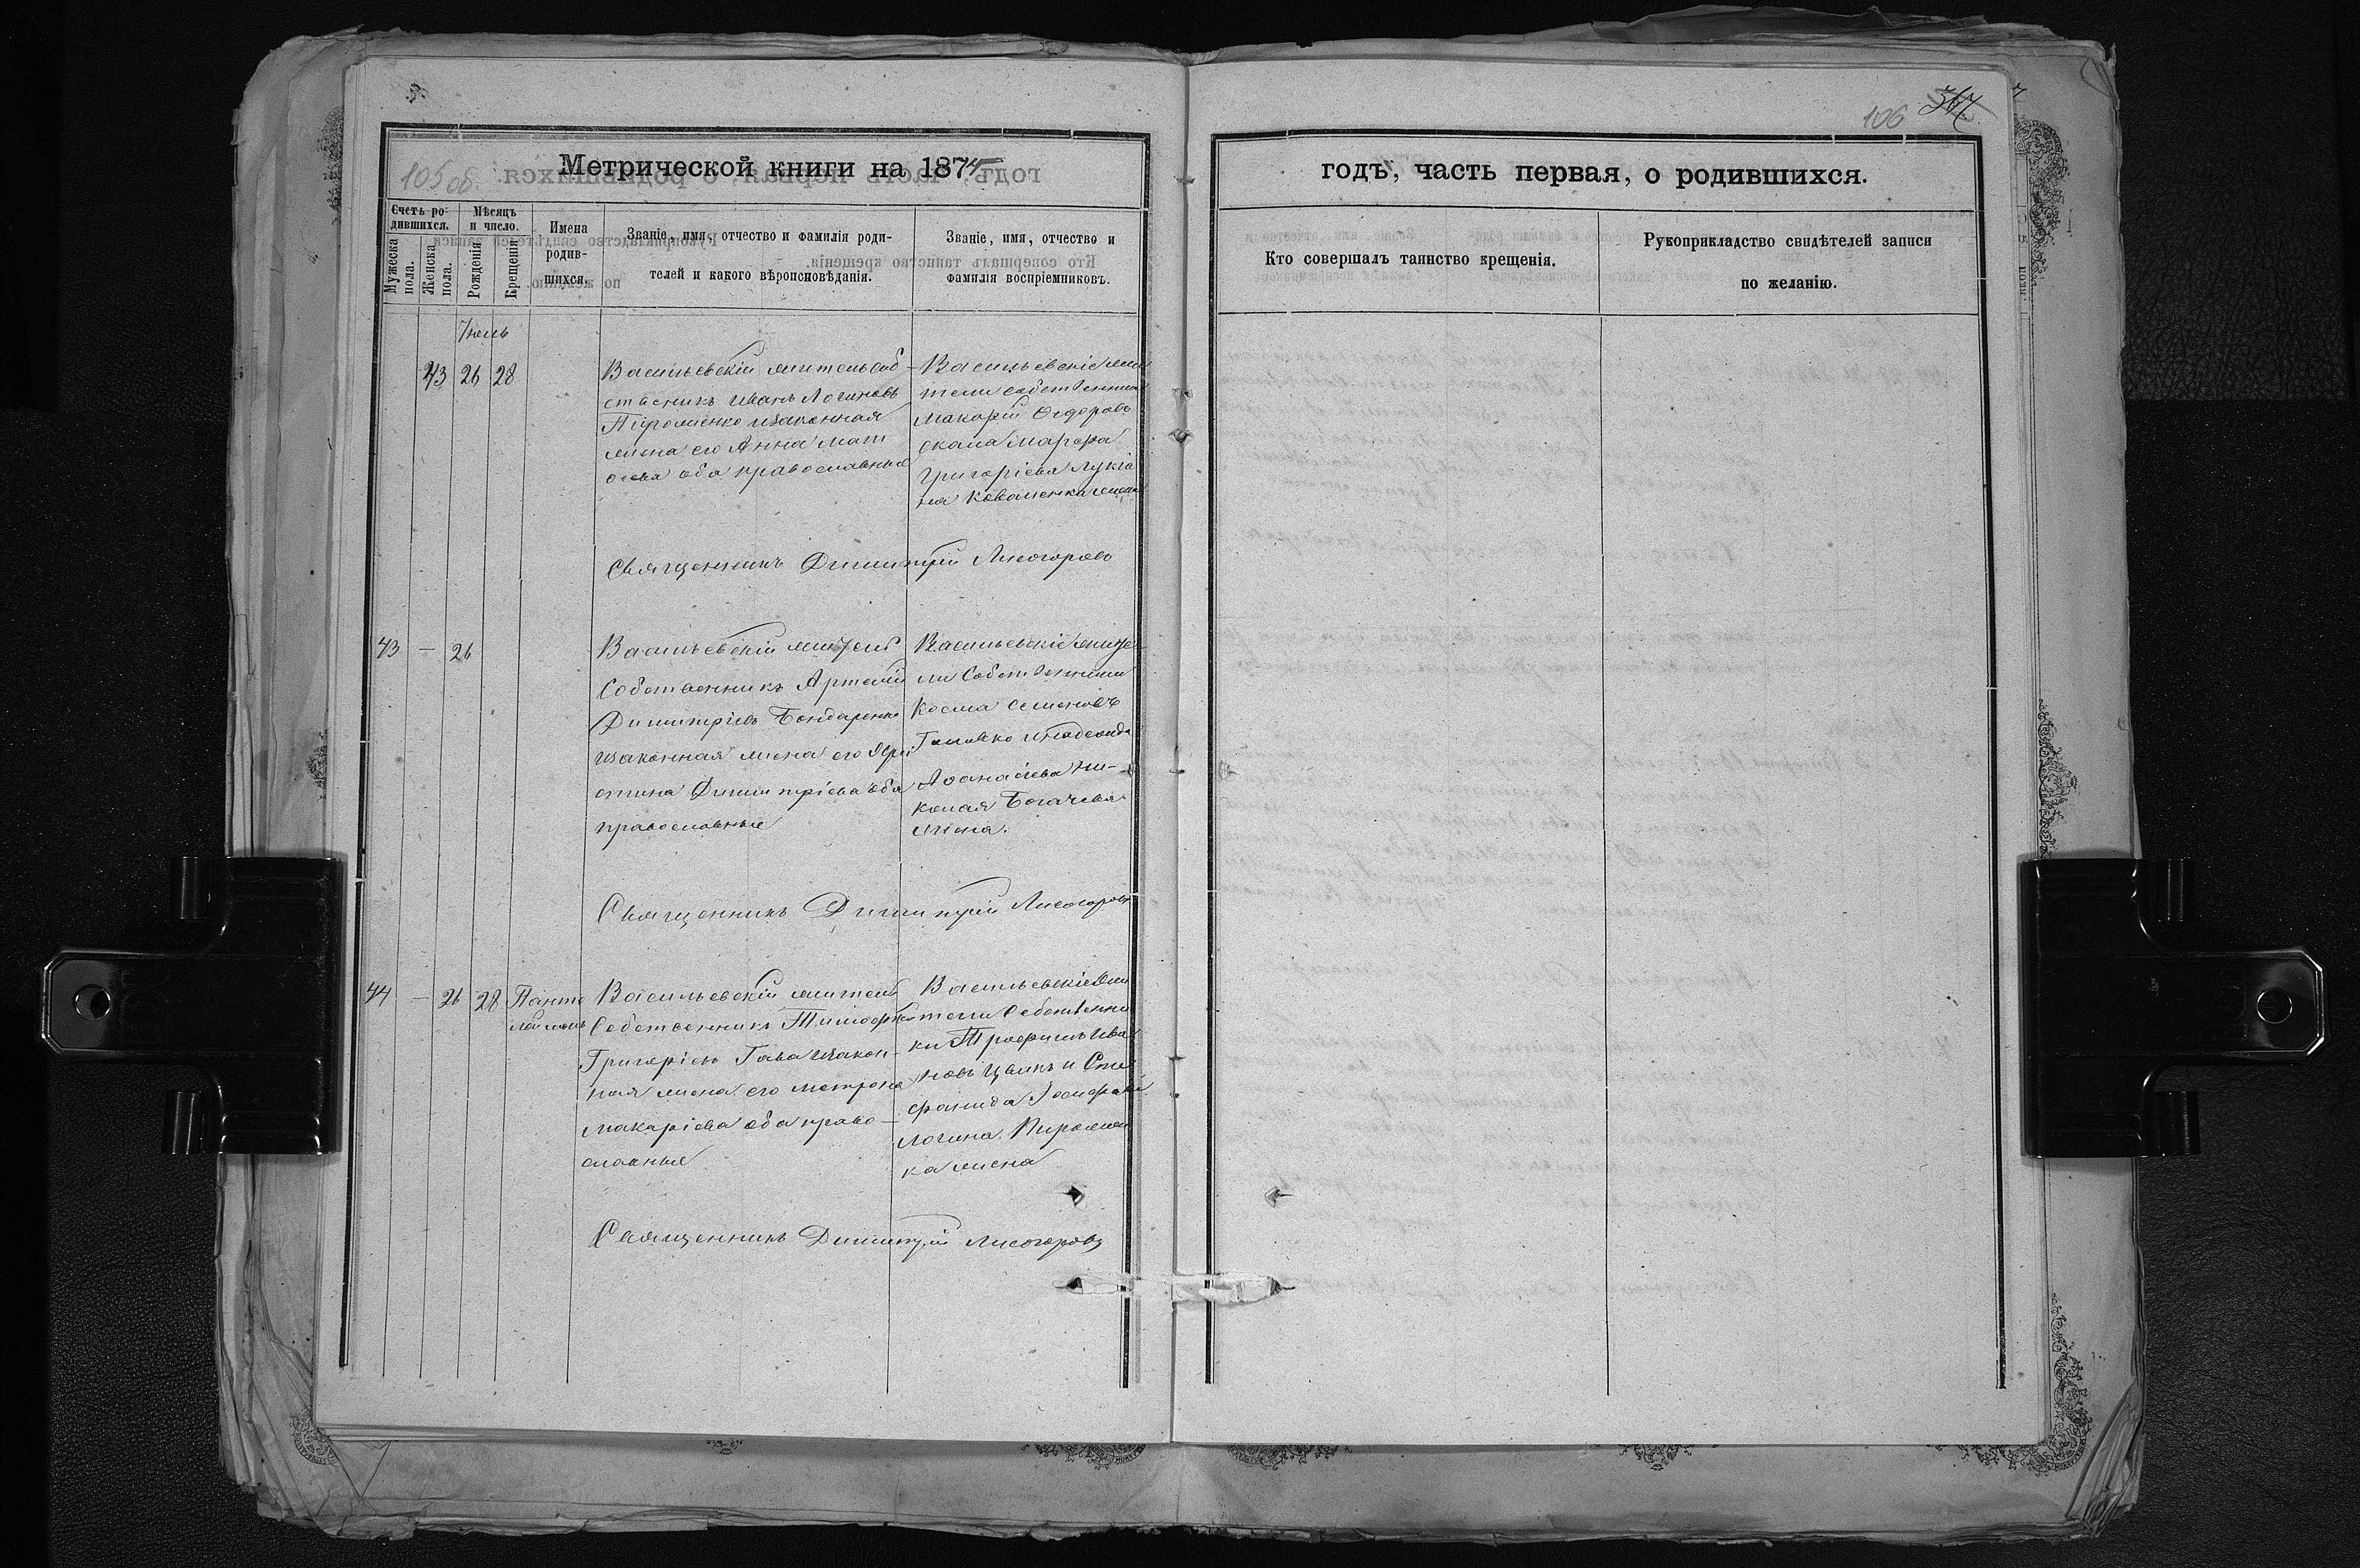 105 об.
Метрической книги на 1874
Счетъ ро-
дившихся.
Мужеска
пола.
Женска
пола.
Мѣсяцъ
и число.
Рожденія
Крещенія
Имена
родив-
шихся.
Званіе, имя, отчество и фамилія роди-
телей и какого вѣроисповѣданія.
Званіе, имя, отчество и
фамилія воспріемниковъ.
Іюль
43 26 28
Васильевскій житель соб-
ственникъ Иванъ Логиновъ
изаконная
жена его Анна Мат
оеева оба православные
Васильевскіе жи
тели собственники
Макарій Ѳедоровъ
Марѳа
Григоріева Лукія
на Коваленка жена
Священникъ Димитрій Лисогоровъ
43 — 26
Васильевскій житель
Собственникъ Артемій
Димитріевъ Бондаренко
изаконная жена его Хри
стина Димитріева оба
православные
Васильевскіе жите-
ли Собственники
Косма Семеновъ
Головко
Аѳанасіева Ни-
колая Богачева
жена.
Священникъ Димитрій Лисогоровъ
44 — 26 28
Панте
леймонъ
Васильевскій житель
Собственникъ Тимоѳей
Григоріевъ Гава изакон-
ная жена его Матрона
Макаріева оба право-
славные
Васильевскіе жи
тели Собственни
ки Трофимъ Ива
новъ и Сте
фанида Іосифова
Логина
ка жена
Священникъ Димитрій Лисогоровъ
106 367
годъ, часть первая, о родившихся.
Кто совершалъ таинство крещенія.
Рукоприкладство свидѣтелей записи
по желанію.